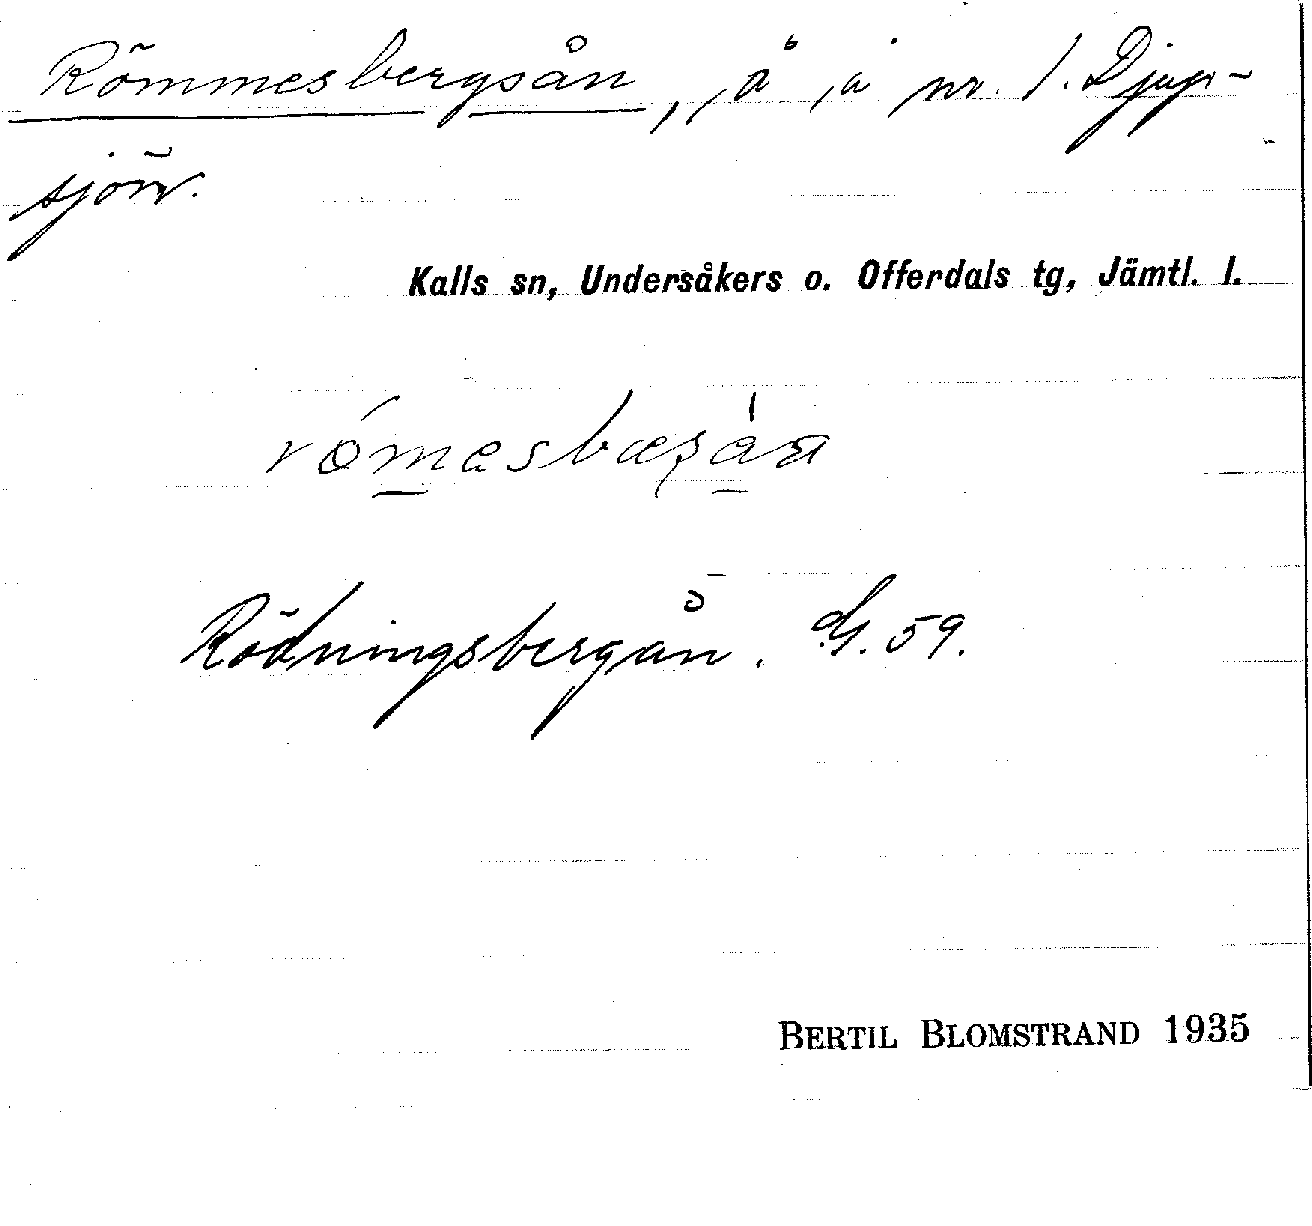 Römmesbergsån, å i nr. 1. Djup-
sjön.
Kalls sn, Undersåkers o. Offerdals tg, Jämtl. l.
Rödningsbergån. 59.
BERTIL BLOMSTRAND 1935